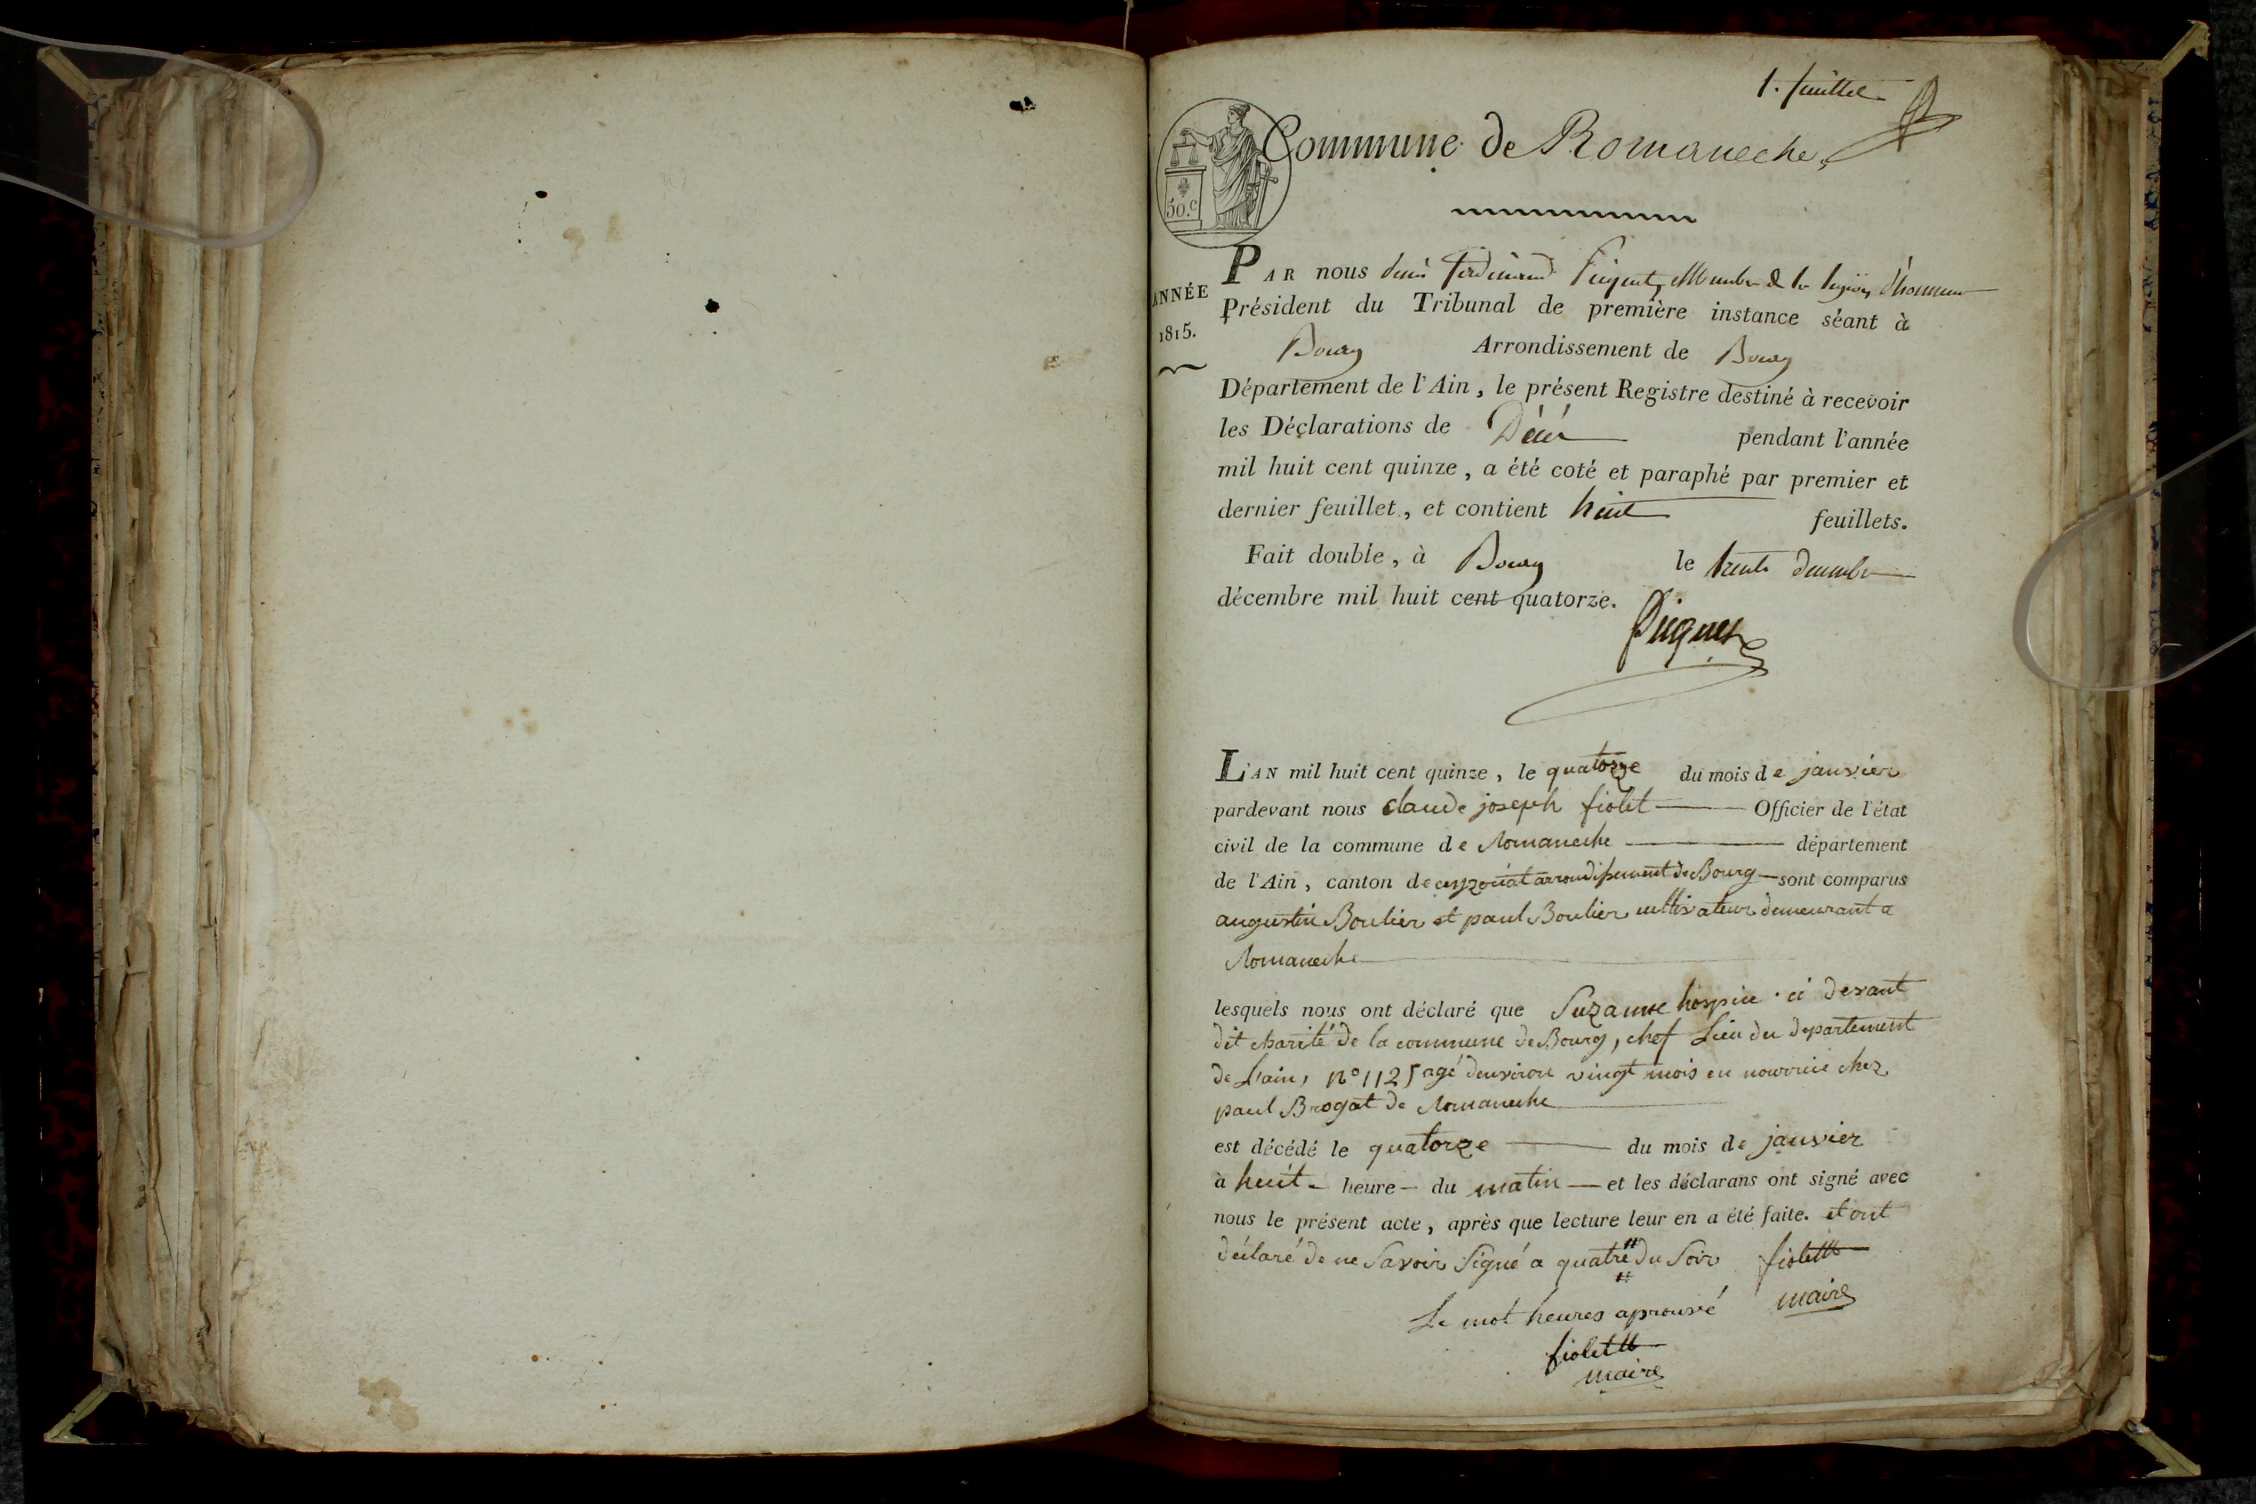 1. feuillet
Commune de Romaneche
50.c
ANNÉE
1815.
PAR nous denis ferdinand Piquet, Membre de la legion d'honneur
Président du Tribunal de première instance séant à
Bourg Arrondissement de Bourg
Département de l'Ain, le présent Registre destiné à recevoir
les Déclarations de Décés pendant l'année
mil huit cent quinze, a été coté et paraphé par premier et
dernier feuillet, et contient huit feuillets.
Fait double, à Bourg le trente decembre
décembre mil huit cent quatorze.
Piquet
L'AN mil huit cent quinze, le quatorze du mois de janvier
pardevant nous claude joseph fiolet Officier de l'état
civil de la commune de Romaneche département
de l'Ain, canton de ceyzeriat arrondissement de Bourg sont comparus
augustin Boulier et paul Boulier cultivateur demeurant a
Romaneche
lesquels nous ont déclaré que Suzanne hospice ci devant
dit charité de la commune de Bourg, chef Lieu du departement
de L'ain, n° 1125 agé denviron vingt mois en nourrice chez
paul Brogat de Romaneche
est décédé le quatorze du mois de janvier
à huit heure du matin et les déclarans ont signé avec
nous le présent acte, après que lecture leur en a été faite. et ont
déclaré de ne Savoir Signé a quatre du Soir fiolet
maire
Le mot heures aprouvé
fiolet
maire